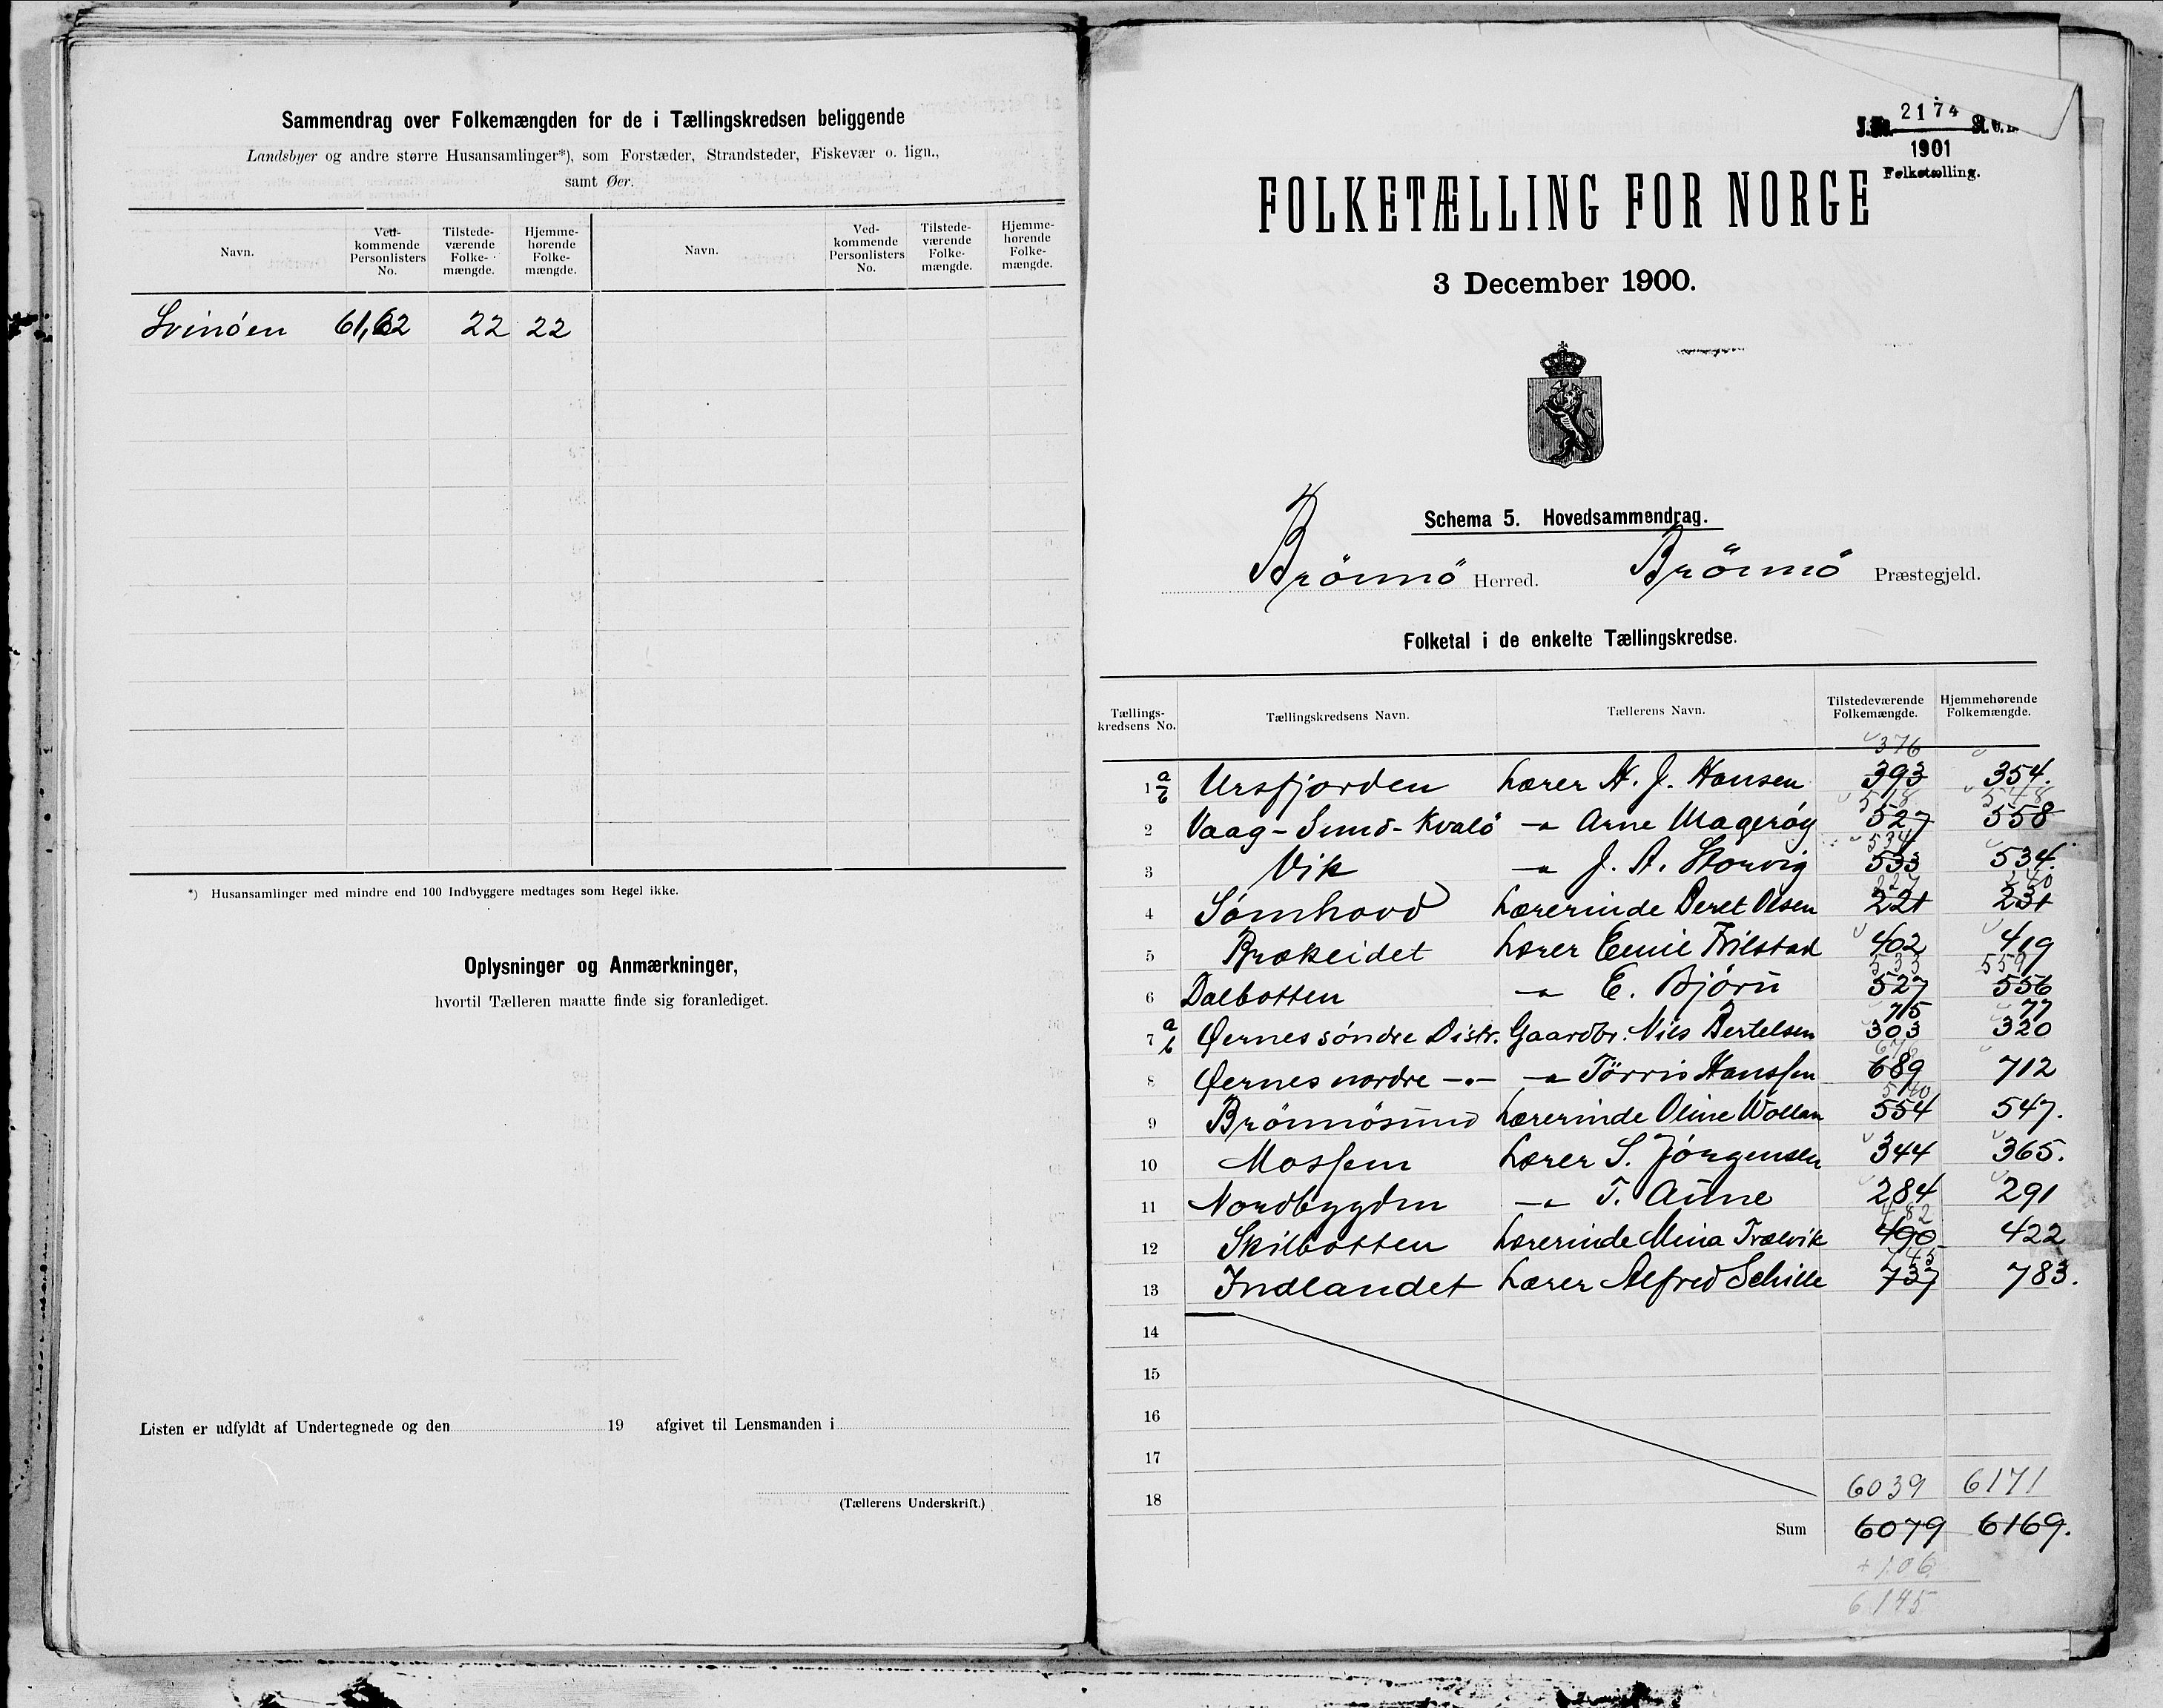 Sammendrag over Folkemængden for de i Tællingskredsen beliggende
Landsbyer og andre større Husansamlinger*), som Forstæder, Strandsteder, Fiskevær o. lign.,
samt Øer.
Navn. Ved-kommende Personlisters No. Tilstede-værende Folke-mængde. Hjemme-hørende Folke-mængde. Navn. Ved-kommende Personlisters No. Tilstede-værende Folke-mængde. Hjemme-hørende Folke-mængde.
Svinöen 61,62 22 22
*) Husansamlinger med mindre end 100 Indbyggere medtages som Regel ikke.
Oplysninger og Anmærkninger,
hvortil Tælleren maatte finde sig foranlediget.
Listen er udfyldt af Undertegnede og den 19 afgivet til Lensmanden i
(Tællerens Underskrift.)
2174
1901
Folketælling.
FOLKETÆLLING FOR NORGE
3 December 1900.
Schema 5. Hovedsammendrag.
Brönnö Herred. Brönnö Præstegjeld.
Folketal i de enkelte Tællingskredse.
Tællings-kredsens No. Tællingskredsens Navn. Tællerens Navn. Tilstedeværende Folkemængde. Hjemmehørende Folkemængde.
376
1 a/b Ursfjorden Lærer H. J. Hansen 393 354.
518 548
2 Vaag-Sund-Kvalö -"- Arne Magerøy 527 558
534
3 Vik -"- J. A. Storvig 533 534.
227 240
4 Sömhovd Lærerinde Beret Olsen 221 231
5 Brækeidet Lærer Emil Frilstad 402 419
533 559
6 Dalbotten -"- E. Björu 527 556
75 77
7 a/b Øernes söndre Distr. Gaardbr. Nils Bertelsen 303 320
676
8 Øernes nordre -"- -"- Törris Hanssen 689 712
540
9 Brönnösund Lærerinde Oline Wollan 554 547.
10 Mossem Lærer S. Jörgensen 344 365.
11 Nordbygden -"- T. Aune 284 291
482
12 Skilbotten Lærerinde Mina Trælvik 490 422
745
13 Indlandet Lærer Alfred Schille 737 783.
14
15
16
17
6039 6171
18
Sum 6079 6169.
+106
6145